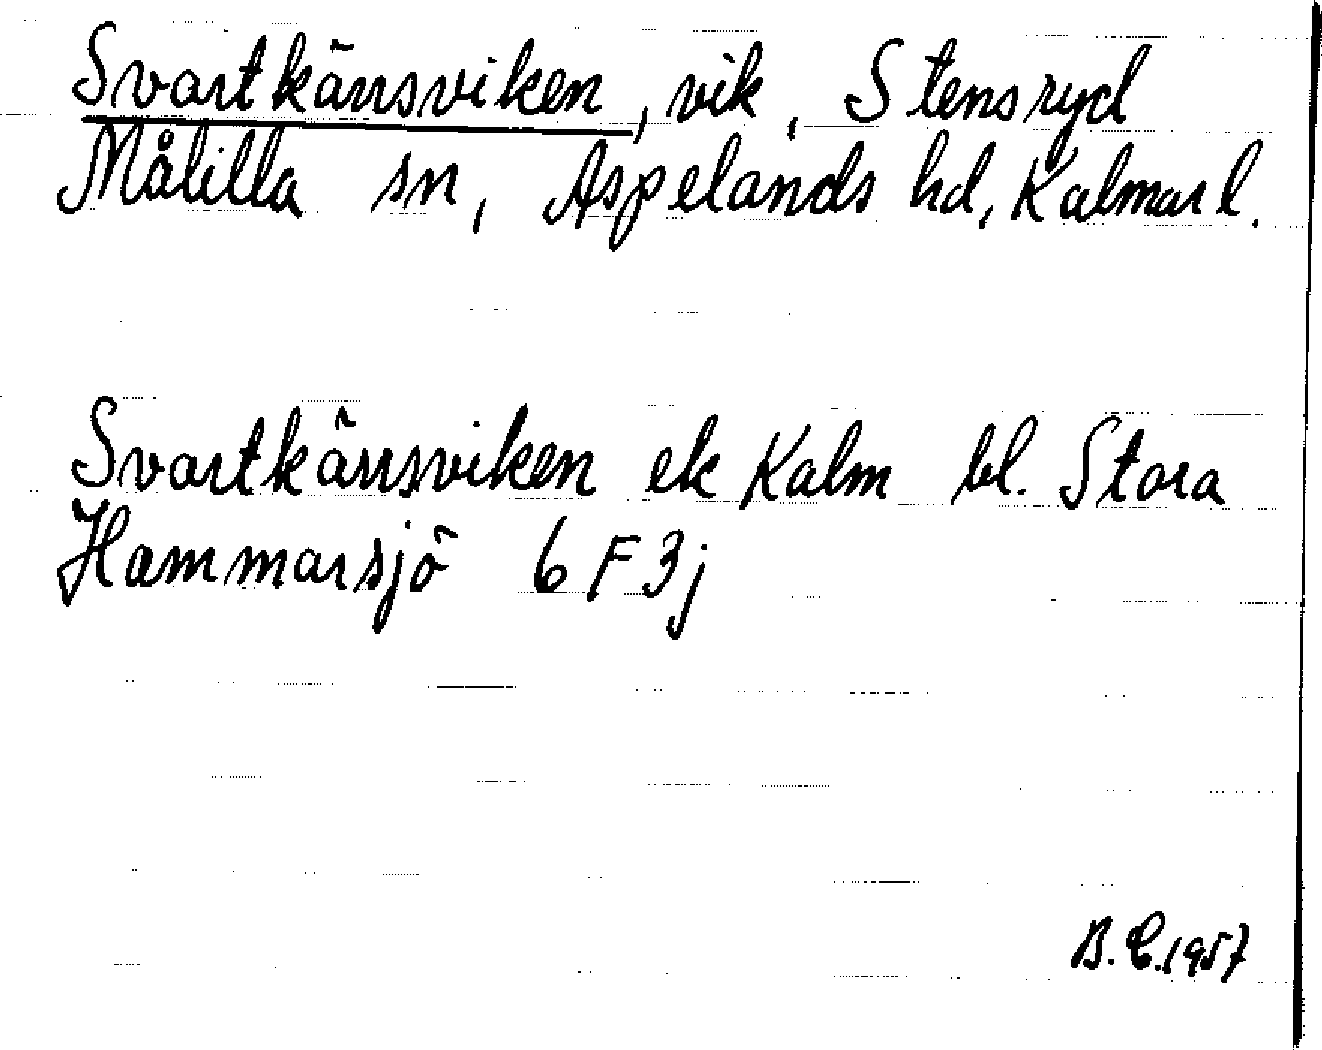 Svartkärrsviken, vik, Stensryd
Målilla sn, Aspelands hd, Kalmar l.
Svartkärrsviken ek Kalm bl. Stora
Hammarsjö 6 F 3j
B. E. 1957